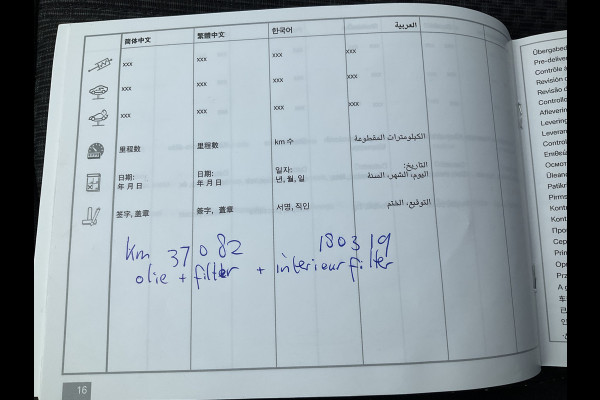 简体中文 繁體中文 한국어 العربية
xxx xxx xxx xxx
xxx xxx xxx xxx
xxx xxx xxx xxx
里程数 里程數 km 수 الكيلومترات المقطوعة
日期: 日期: 일자: التاريخ:
年 月 日 年 月 日 년, 월, 일 اليوم, الشهر, السنة
签字, 盖章 簽字, 蓋章 서명, 직인 التوقيع, الختم
Km 37082 180319
olie + filter + interieur filter
16
Übergabed
Pre-deliver
Contrôle a
Revisión d
Revisão d
Controllo
Afleverin
Levering
Leveran
Control
Επιθεώ
Осмот
Üleand
Patikr
Pirms
Kont
Kont
Про
Сер
Prim
Öpr
Prz
A g
车
已
인